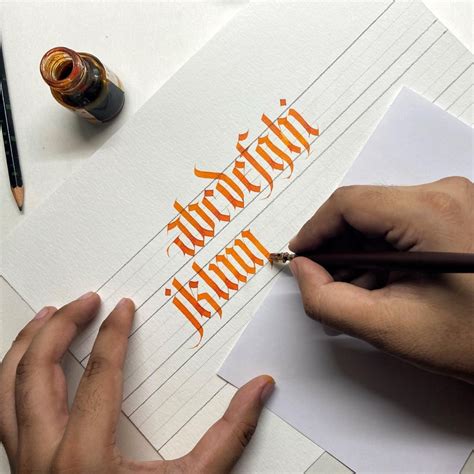 abcdefghi
jklmn